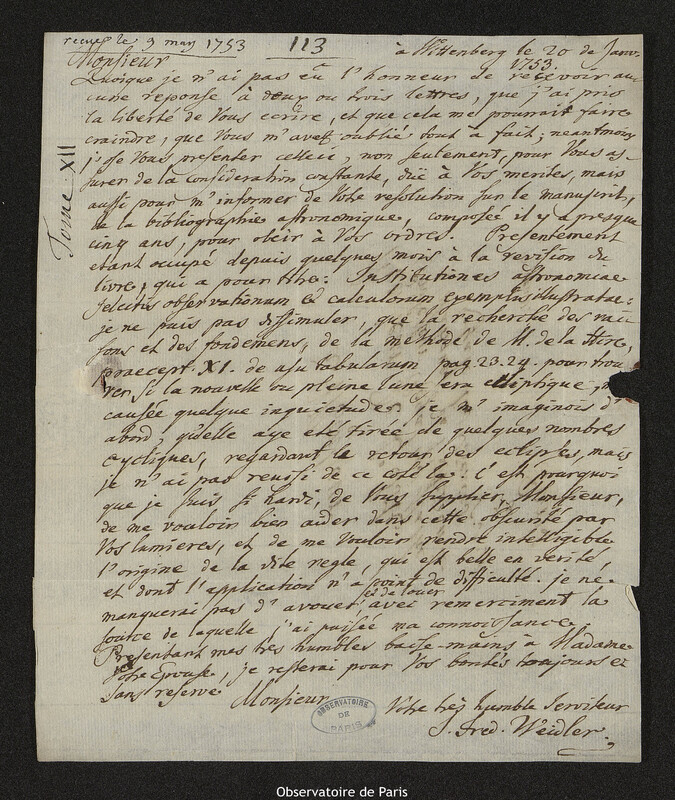 recue le 9 may 1753
113
à Wittenberg le 20 de Janv.
1753.
Monsieur
Quoique je n'ai pas eu l'honneur de recevoir au
cune reponse à deux ou trois lettres, que j'ai pris
la liberté de Vous ecrire, et que cela me pourrait faire
craindre, que Vous m'avez oublié tout à fait; neantmoins
j'ose Vous presenter celleci, non seulement, pour Vous as
surer de la consideration constante, duë à Vos merites, mais
aussi pour m'informer de Votre resolution sur le manuscrit,
de la bibliographie astronomique, composée il y a presque
cinq ans, pour obeir à Vos ordres. Presentement
etant occupé depuis quelques mois à la revision du
livre, qui a pour titre: Institutiones astronomiae
selectis observationum & calculorum exemplis illustratae:
je ne puis pas dissimuler, que la recherche des rai
sons et des fondemens, de la methode de M. de la Hire,
praecept. XI. de usu tabularum pag. 23.24. pour trou
ver si la nouvelle ou pleine lune era ecliptique, m'a
causée quelque inquietude. je m'imaginois d'
abord, qu'elle aye eté tirée de quelques nombres
cycliques, regardant le retour des eclipses, mais
je n'ai pas reussi de ce coté la. C'est pourquoi
que je suis si hardi, de Vous supplier, Monsieur,
de me vouloir bien aider dans cette obscurité par
Vos lumieres, et de me vouloir rendre intelligible
l'origine de la dite regle, qui est belle en verité,
et dont l'application n'a point de difficulté. je ne
manquerai pas d'avouer et de louer avec remerciment la
source de laquelle j'ai puisée ma connoissance.
Presentant mes tres humbles baise-mains à Madame
Votre Epouse, je resterai pour Vos bontés toujours et
sans reserve
Monsieur
Votre très humble serviteur
J. Fred. Weidler.
Tome XII
OBSERVATOIRE
DE
PARIS
Observatoire de Paris